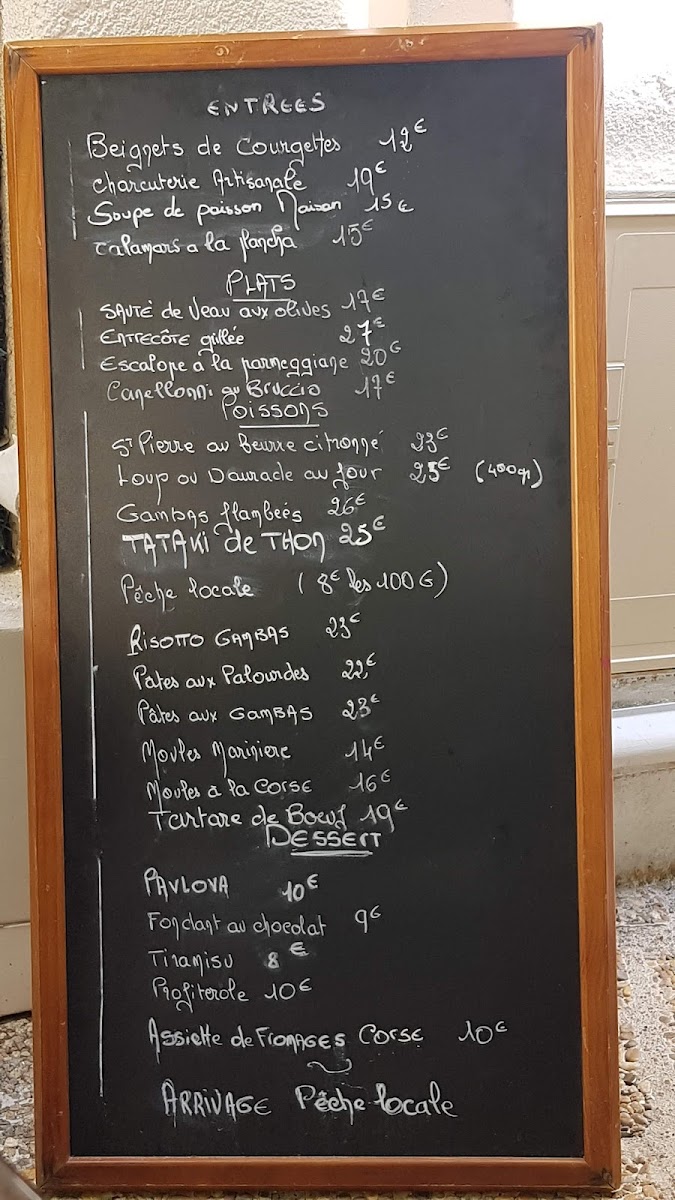 ENTREES
Beignets de Courgettes 12€
charcuterie Artisanale 19€
Soupe de poisson Maison 15€
Calamars a la plancha 15€
PLATS
SAUTÉ de Veau aux olives 17€
ENTRECÔTE grillée 27€
Escalope a la parmeggiane 20€
Canellonni au Bruccio 17€
POISSONS
St Pierre au beurre citronné 23€
Loup ou Daurade au four 25€ (400gr)
GAMBAS flambeés 26€
TATAKI de THON 25€
Pêche locale (8€ les 100G)
RISOTTO GAMBAS 23€
Pates aux Palourdes 22€
Pâtes aux GAMBAS 23€
Moules Mariniere 14€
Moules a la Corse 16€
Tartare de Boeuf 19€
DESSERT
PAVLOVA 10€
Fondant au chocolat 9€
Tiramisu 8€
Profiterole 10€
Assiette de FROMAGES CORSE 10€
ARRIVAGE Pêche locale